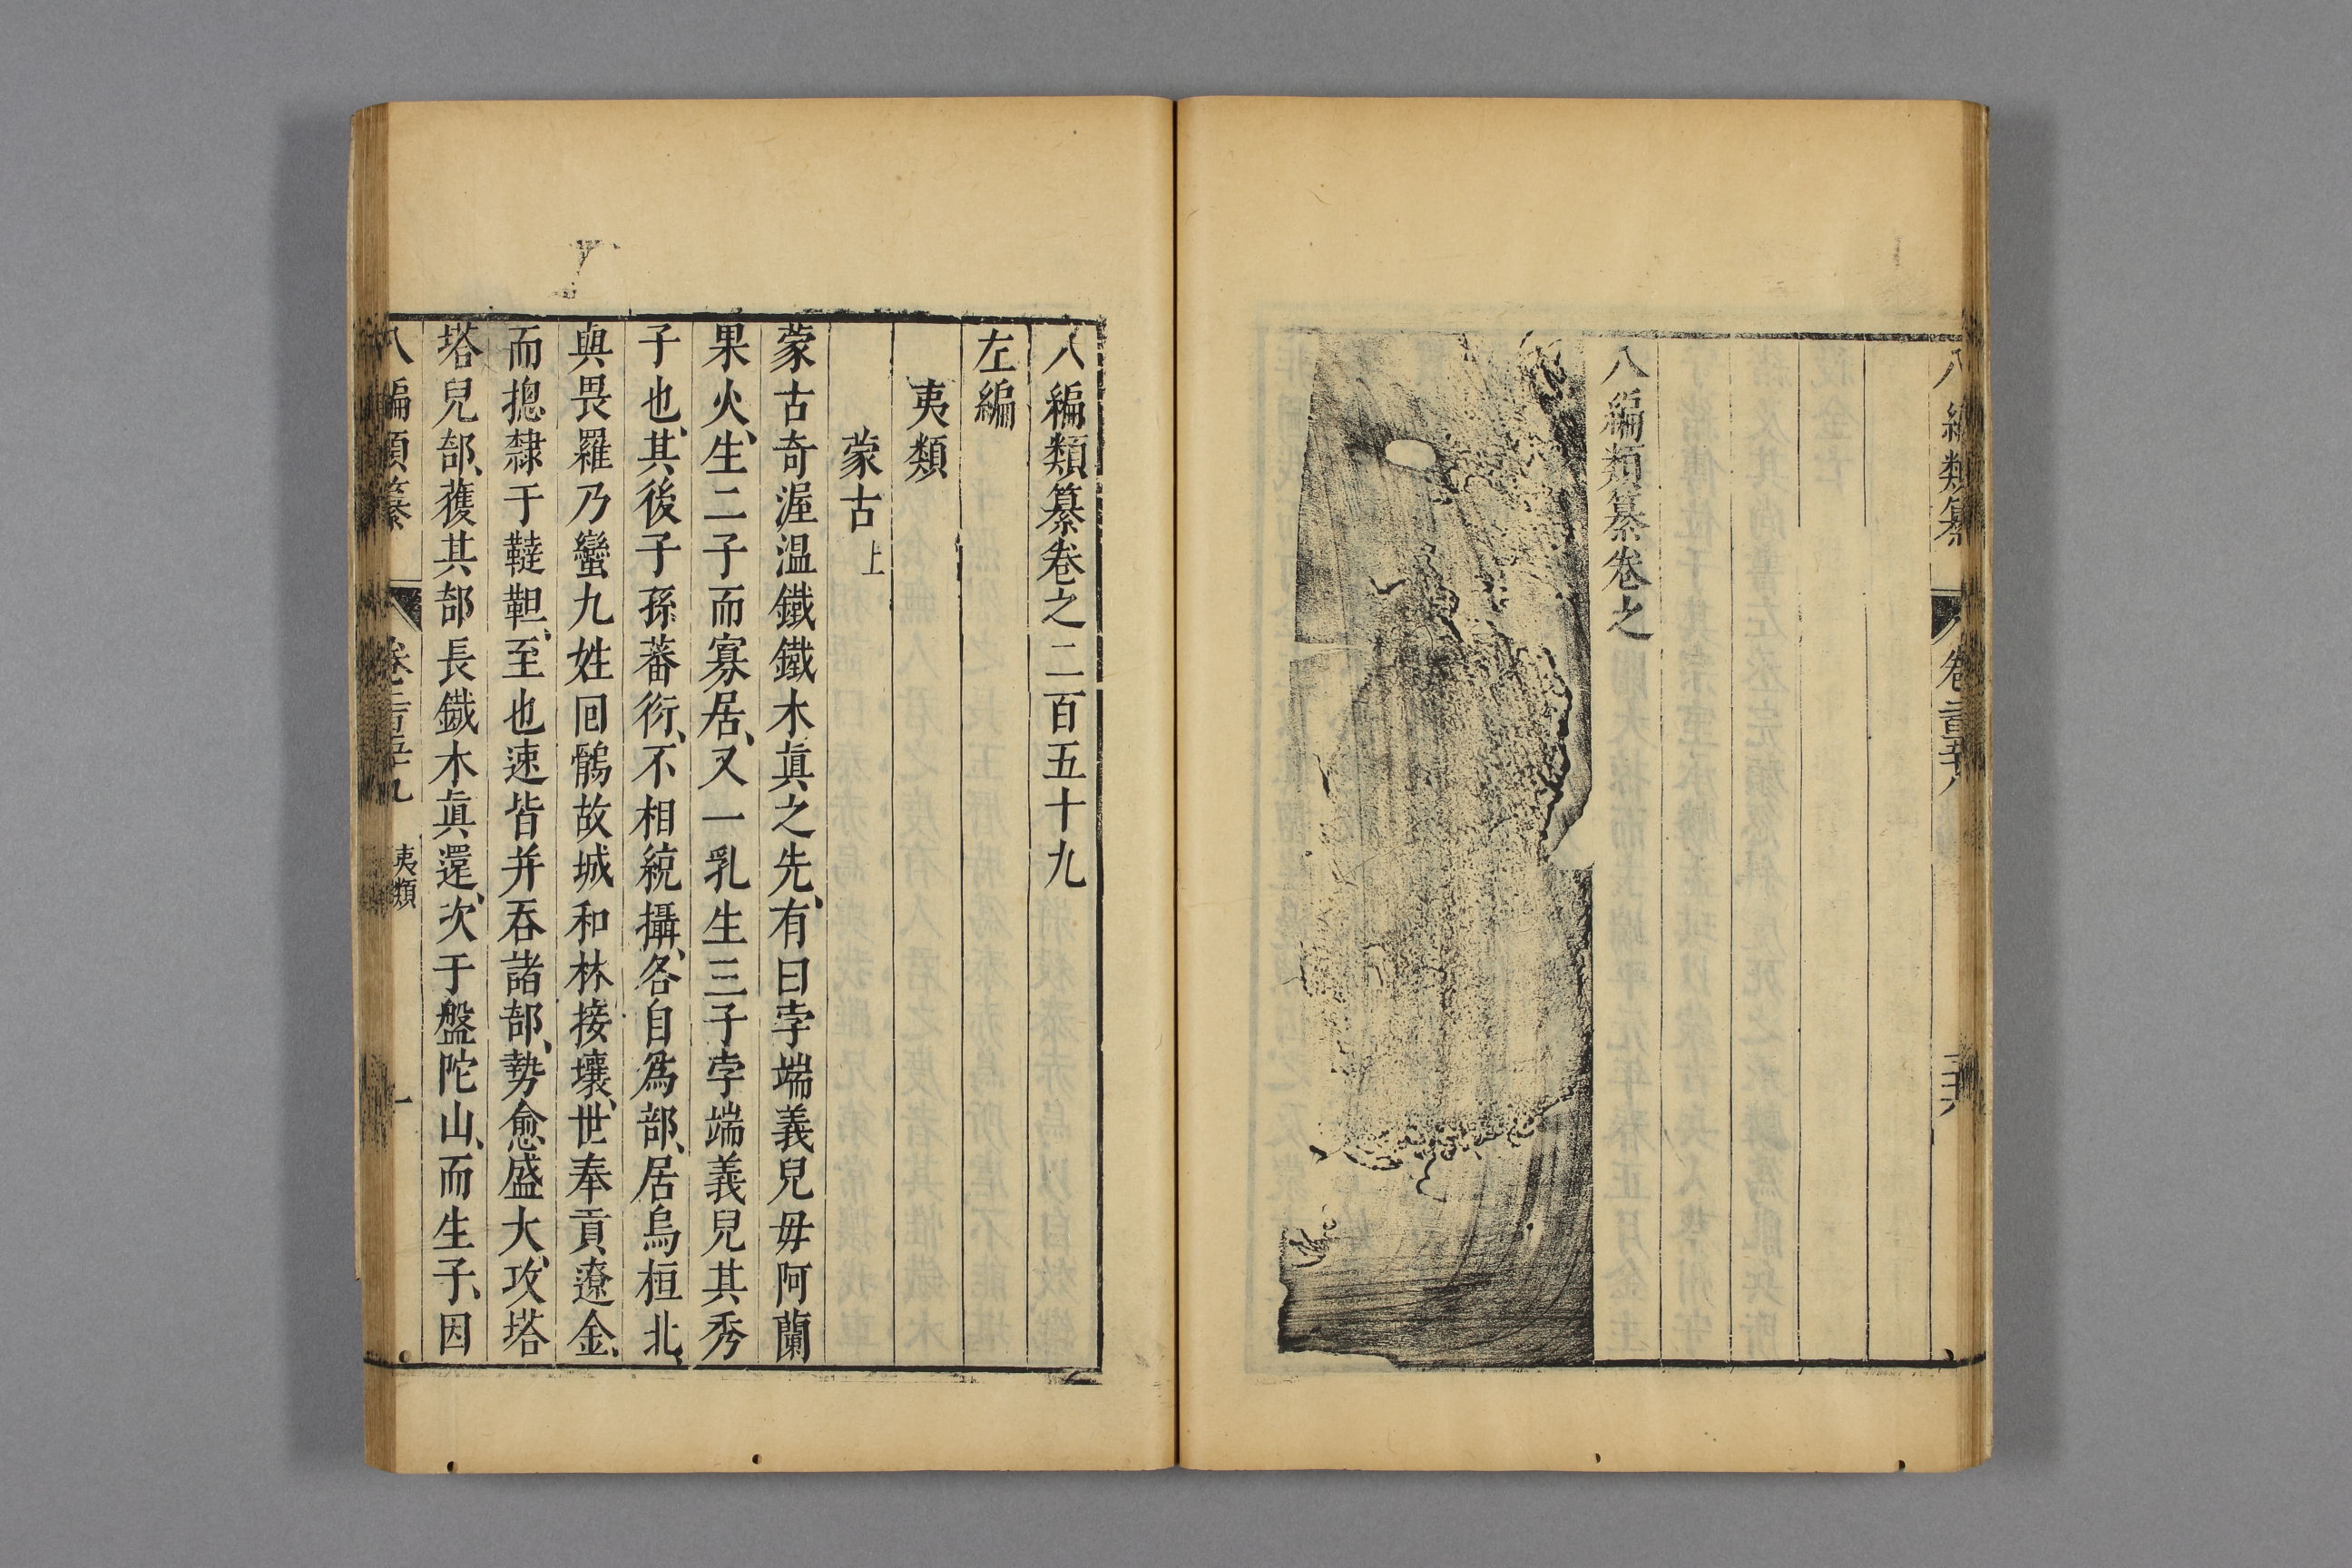 八編類纂
卷二百五十八
二十六
八編類纂卷之
八編類纂卷之二百五十九
左編
夷類
蒙古上
蒙古奇渥温鐵鐵木眞之先、有曰孛端義兒毋阿蘭
果火、生二子而寡居、又一乳生三子孛端義兒其秀
子也、其後子孫蕃衍、不相統攝、各自爲部、居烏桓北、
與畏羅乃蠻九姓回鶻故城和林接壤、世奉貢遼金、
而摠隸于韃靼、至也速皆并吞諸部、勢愈盛大、攻塔
塔兒部、獲其部長鐵木眞還、次于盤陀山、而生子、因
八編類纂
卷二百五十九
夷類
一